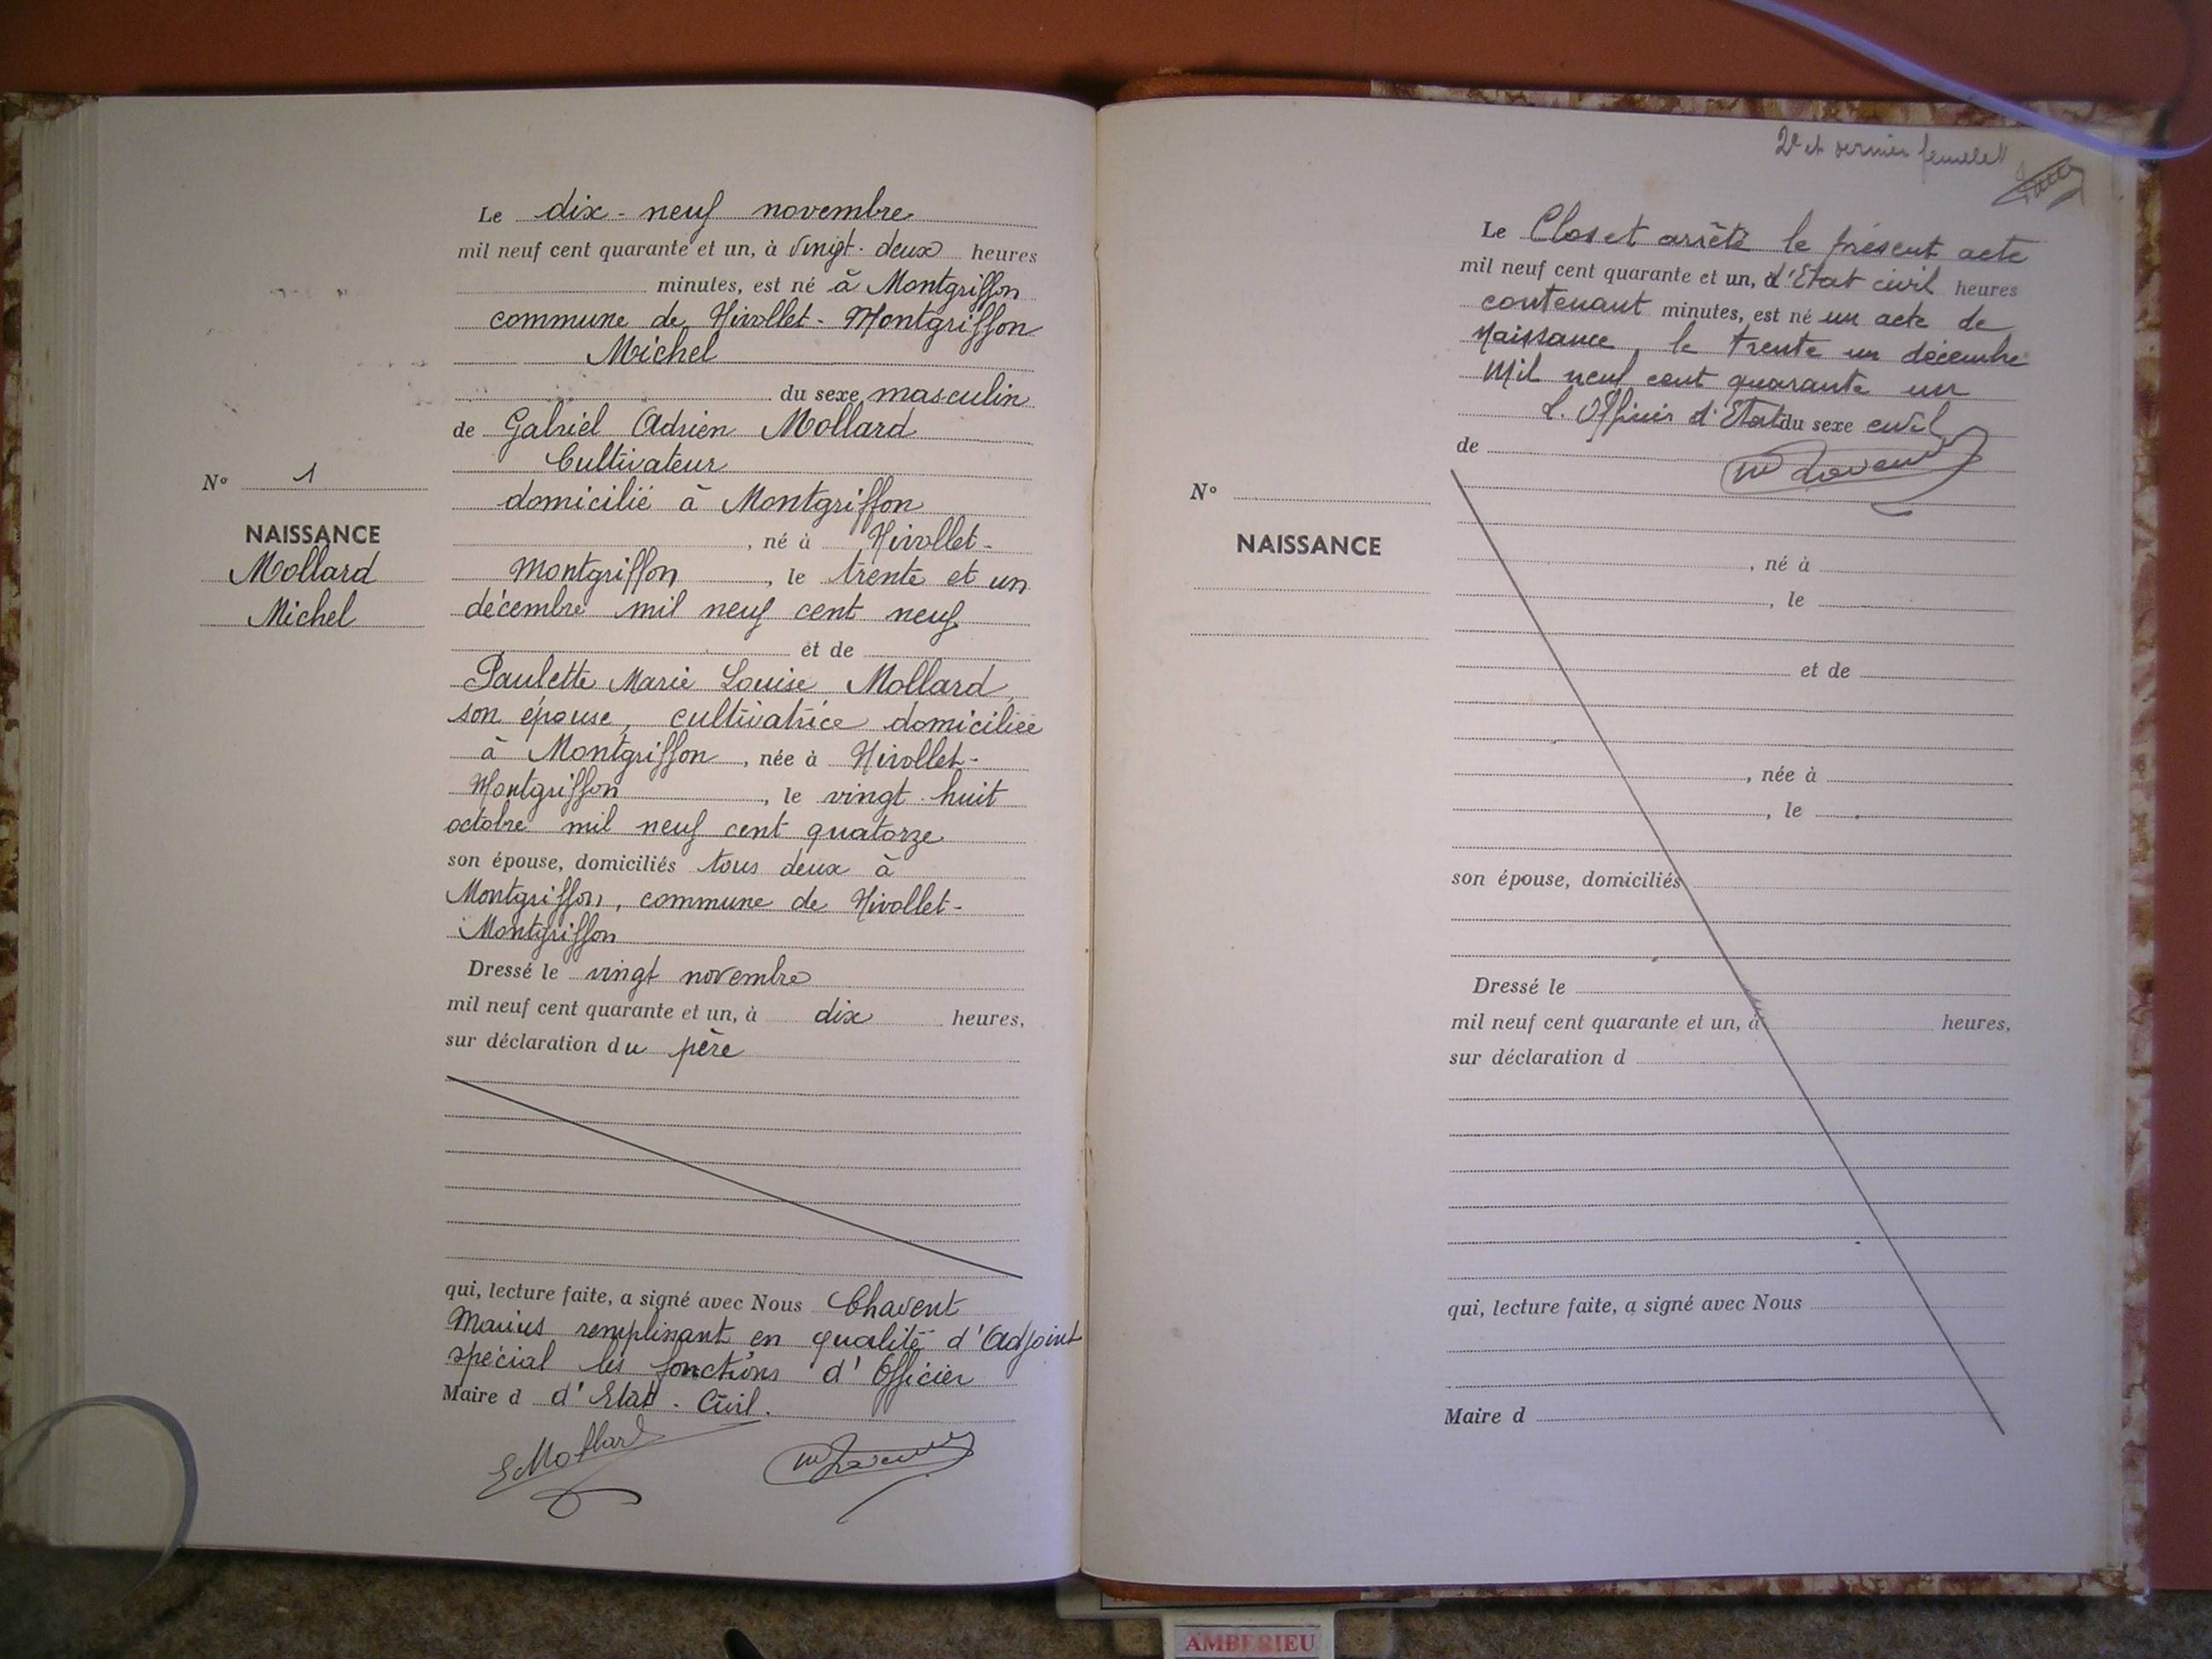 Le dix-neuf novembre
mil neuf cent quarante et un, à vingt-deux heures
minutes, est né à Montgriffon
commune de Nivollet-Montgriffon
Michel
du sexe masculin
de Gabriel Adrien Mollard
Cultivateur
domicilié à Montgriffon
, né à Nivollet-
Montgriffon, le trente et un
décembre mil neuf cent neuf
et de
Paulette Marie Louise Mollard,
son épouse, cultivatrice domiciliée
à Montgriffon, née à Nivollet-
Montgriffon, le vingt-huit
octobre mil neuf cent quatorze
son épouse, domiciliés tous deux à
Montgriffon, commune de Nivollet-
Montgriffon
Dressé le vingt novembre
mil neuf cent quarante et un, à dix heures,
sur déclaration du père
qui, lecture faite, a signé avec Nous Chavent
Marius remplissant en qualité d'Adjoint
spécial les fonctions d'Officier
Maire d d'Etat-Civil.
GMollard
N° 1
NAISSANCE
Mollard
Michel
2e et dernier
Le Clos et arrêté le présent acte
mil neuf cent quarante et un, d'Etat civil heures
contenant minutes, est né un acte de
Naissance, le trente un décembre
Mil neuf cent quarante un
L'Officier d'Etat du sexe civil
de
N°
NAISSANCE
, né à
, le
et de
, née à
, le
son épouse, domiciliés
Dressé le
mil neuf cent quarante et un, à heures,
sur déclaration d
qui, lecture faite, a signé avec Nous
Maire d
AMBERIEU